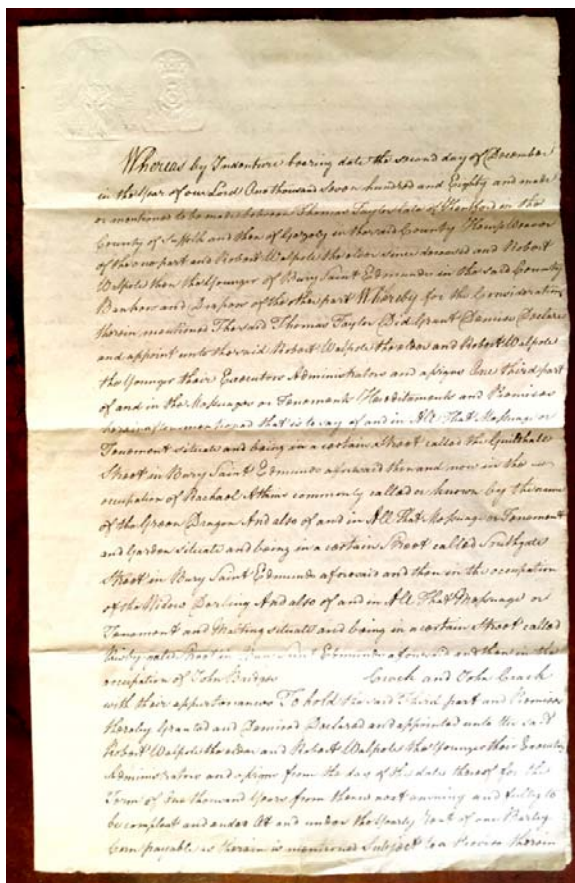 Whereas by Indenture bearing date the second day of December
in the Year of our Lord One thousand seven hundred and Eighty and made
or mentioned to be made between Thomas Taylor late of in the
County of Suffolk and then of in the said County Hemp Weaver
of the one part and Robert Walpole the elder since deceased and Robert
Walpole then the Younger of Bury Saint Edmunds in the said County
and Draper of the other part Whereby for the Consideration
therein mentioned The said Thomas Taylor Did Grant Demise Declare
and appoint unto the said Robert Walpole the elder and Robert Walpole
the Younger their Executors Administrators and assigns One third part
of and in the Messuages or Tenements Hereditaments and Premises
hereinafter mentioned that is to say of and in All That Messuage or
Tenement situate and being in a certain Street called the Guildhall
Street in Bury Saint Edmunds aforesaid then and now in the
occupation of Rachael Atkins commonly called or known by the name
of the Green Dragon And also of and in All That Messuage or Tenement
and Garden situate and being in a certain Street called Southgate
Street in Bury Saint Edmunds aforesaid and then in the occupation
of the Widow And also of and in All That Messuage or
Tenement and Malting situate and being in a certain Street called
Street in Bury Saint Edmunds aforesaid and then in the
occupation of John Bridges and John
with their appurtenances To hold the said Third part and Premises
thereby Granted and Demised Declared and appointed unto the said
Robert Walpole the elder and Robert Walpole the Younger their Executors
Administrators and assigns from the day of the date thereof for the
Term of One thousand Years from thence next ensuing and fully to
be compleat and ended At and under the Yearly Rent of one Barley
Corn payable as therein is mentioned Subject to a Proviso therein